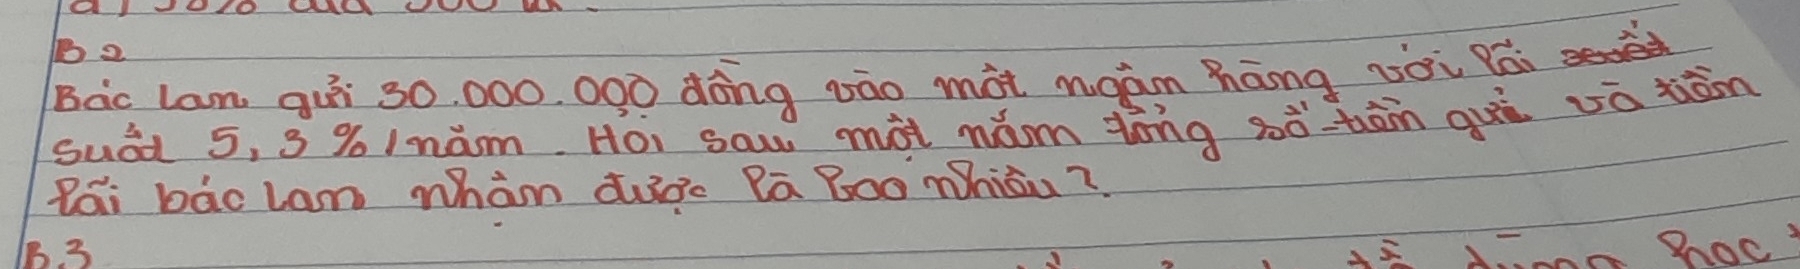 a) 30% của 500
B2
Bác Lam gửi 30.000.000 đồng vào một ngân hàng với lãi
suất 5,3%/năm. Hỏi sau một năm tổng số tiền gửi và tiền
lãi bác Lam nhận được là bao nhiêu?
B.3
học